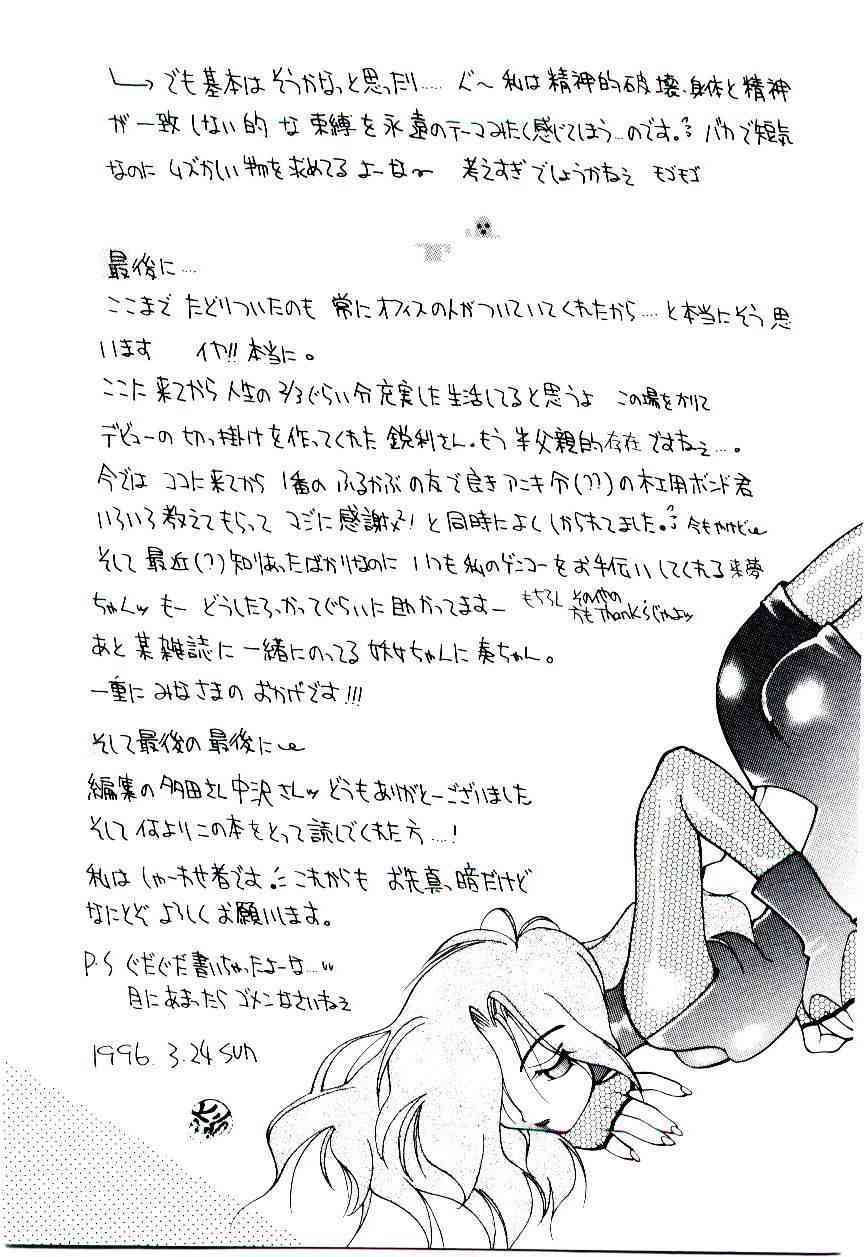 でも基本はそうかなっと思ったり…… ぐ〜 私は精神的破壊・身体と精神
が一致しない的な束縛を永遠のテーマみたく感じてしまう…のです。 バカで短気
なのに ムズかしい物を求めてるよーな〜 考えすぎでしょうかねぇ モゴモゴ
最後に…
ここまでたどりついたのも 常にオフィスの人がついていてくれたから…… と本当にそう思
います イヤ!! 本当に。
ここに来てから人生の2/3ぐらい分充実した生活してると思うよ この場をかりて
デビューの切っ掛けを作ってくれた鋭利さん。もう半父親的存在ですねぇ…。
今では ココに来てから 1番のふるかぶの友で良きアニキ分(??)の木工用ボンド君
いろいろ教えてもらって マジに感謝 ! と同時によくしかられてました。 今もやけど
そして 最近(?)知りあったばかりなのに いつも私のゲンコーをお手伝いしてくれる来夢
ちゃんッ もー どうしたろかってぐらいに助かってますー もちろん その他の
方もThank'sじゃよッ
あと某雑誌に一緒にのってる ちゃんに奏ちゃん。
一重に みなさまの おかげです!!!
そして最後の最後に
編集の多田さん中沢さんッ どうもありがとーございました
そして何よりこの本をとって読んでくれた方……!
私は しゃーわせ者です。 これからも お先真っ暗だけど
なにとぞ よろしく お願いします。
P.S ぐだぐだ書いちゃったよーな…
目にあまったら ゴメンなさいねぇ
1996. 3.24 SUN